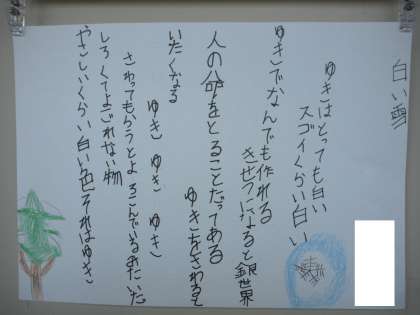 白い雪
ゆきはとっても白い
スゴイくらい白い
ゆきでなんでも作れる
きせつになると銀世界
人の命をとることだってある
ゆきをさわると
いたくなる
ゆき ゆき ゆき
さわってもらうとよろこんでいるみたいだ
しろくてよごれない物
やさしいくらい白い色それはゆき